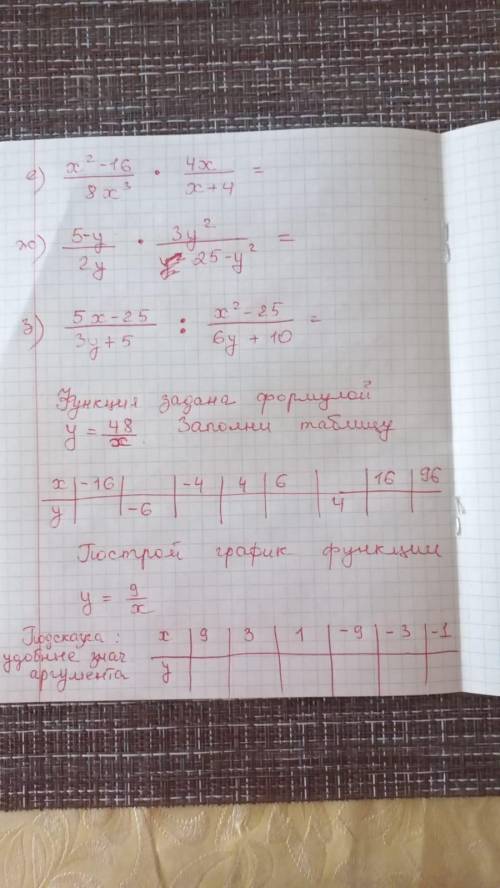 е) (x² - 16)/(8x³) · (4x)/(x+4) =
ж) (5-y)/(2y) · (3y²)/(25-y²) =
з) (5x-25)/(3y+5) : (x²-25)/(6y+10) =
Функция задана формулой
y = 48/x. Заполни таблицу
x | -16 | | -4 | 4 | 6 | | 16 | 96
y | | -6 | | | | 4 | |
Построй график функции
y = 9/x
Подсказка: x | 9 | 3 | 1 | -9 | -3 | -1
удобные знач y | | | | | |
аргумента